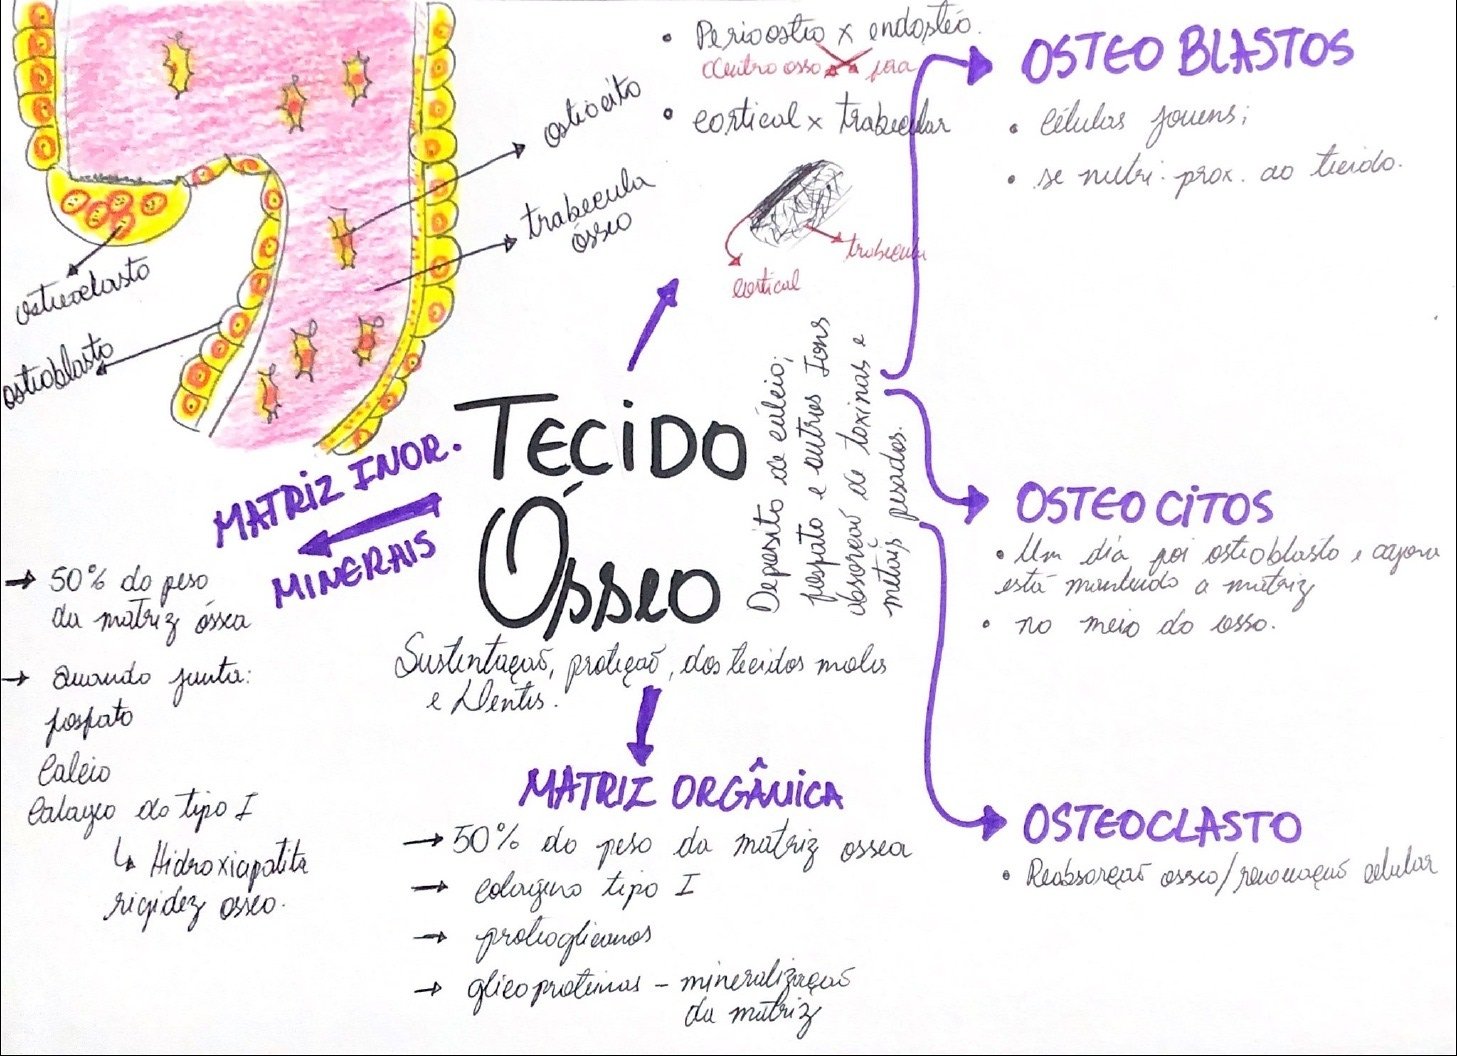 • Periostio x endostéo.
dentro osso fora
• cortical x trabecular
trabecula
cortical
osteocito
trabecula
ósseo
osteoclasto
osteoblasto
OSTEOBLASTOS
• Células jovens;
• se nutri. prox. ao tecido.
TECIDO
ÓSSEO
Sustentação, proteção, dos tecidos moles
e Dentes.
Deposito de cálcio,
fosfato e outros Ions
absorção de toxinas e
metais pesados.
MATRIZ INOR.
MINERAIS
→ 50% do peso
da matriz óssea
→ Quando junta:
fosfato
Calcio
Colageo do tipo I
↳ Hidroxiapatita
rigidez osseo.
OSTEOCITOS
• Um dia foi osteoblasto e agora
está mantendo a matriz
• no meio do osso.
MATRIZ ORGÂNICA
→ 50% do peso da matriz ossea
→ colageno tipo I
→ proteoglicanos
→ glicoproteinas - mineralização
da matriz
OSTEOCLASTO
• Reabsorção osseo/renovação celular